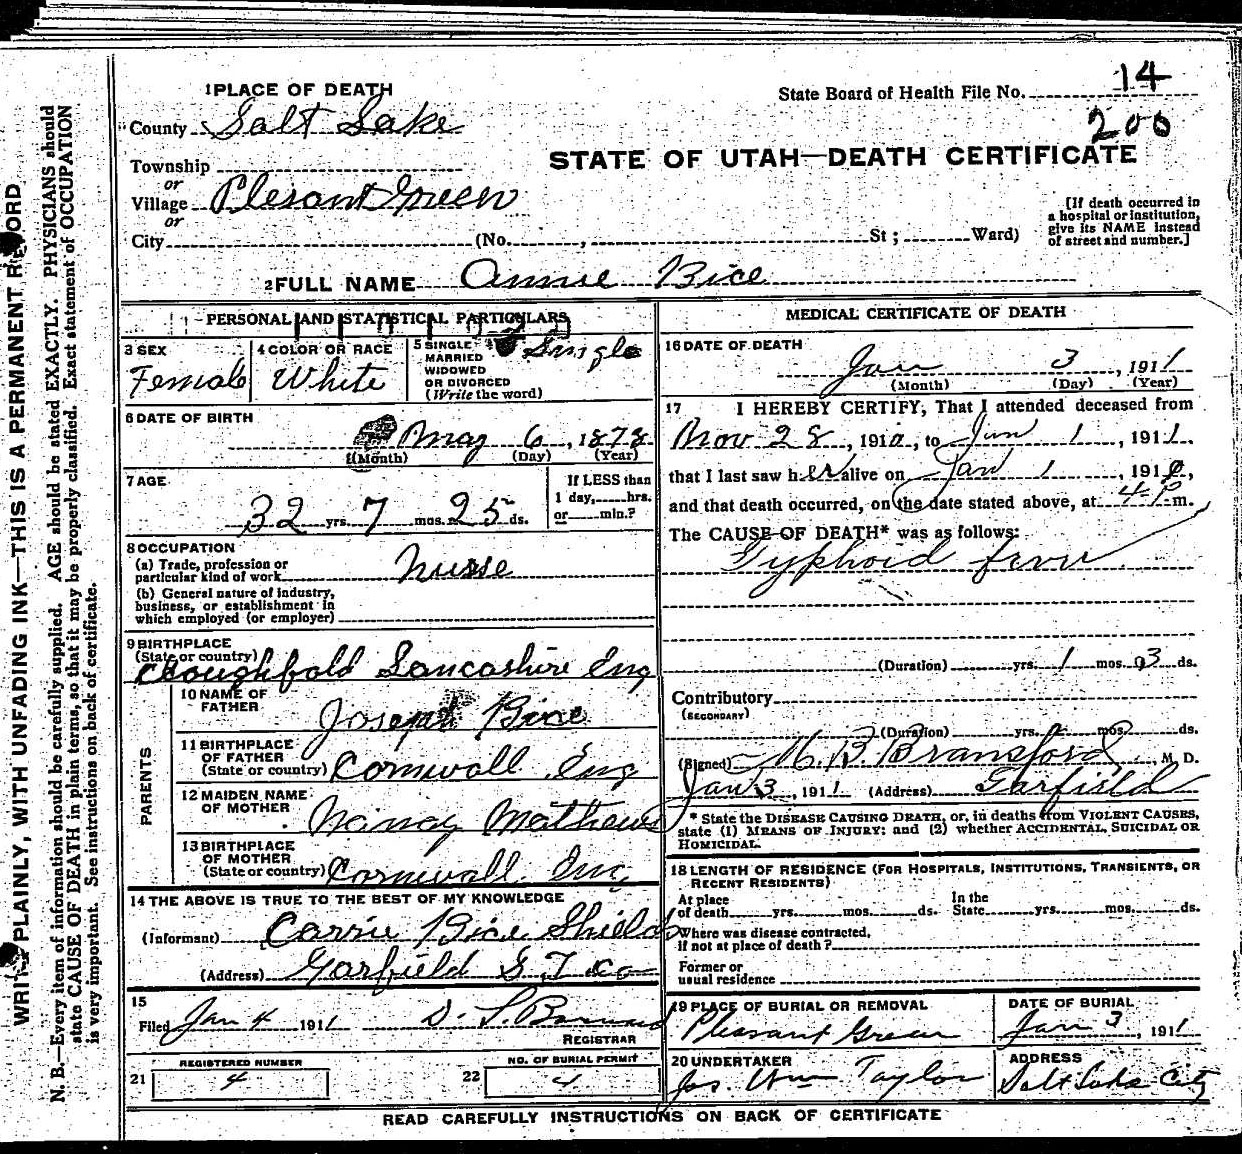 WRITE PLAINLY, WITH UNFADING INK—THIS IS A PERMANENT RECORD
N. B.—Every item of information should be carefully supplied. AGE should be stated EXACTLY. PHYSICIANS should
state CAUSE OF DEATH in plain terms, so that it may be properly classified. Exact statement of OCCUPATION
is very important. See instructions on back of certificate.
1 PLACE OF DEATH
State Board of Health File No. 14
County Salt Lake
200
STATE OF UTAH—DEATH CERTIFICATE
Township
or
Village Plesant Green
or
City (No. , St ; Ward)
[If death occurred in
a hospital or institution,
give its NAME instead
of street and number.]
2 FULL NAME Annie Bice
PERSONAL AND STATISTICAL PARTICULARS
3 SEX
Female
4 COLOR OR RACE
White
5 SINGLE
MARRIED
WIDOWED
OR DIVORCED
(Write the word)
Single
6 DATE OF BIRTH
May 6, 1878
(Month) (Day) (Year)
7 AGE
32 yrs. 7 mos. 25 ds.
If LESS than
1 day, hrs.
or min.?
8 OCCUPATION
(a) Trade, profession or
particular kind of work Nurse
(b) General nature of industry,
business, or establishment in
which employed (or employer)
9 BIRTHPLACE
(State or country)
Cloughfold Lancashire Eng
PARENTS
10 NAME OF
FATHER
Joseph Bice
11 BIRTHPLACE
OF FATHER
(State or country) Cornwall Eng
12 MAIDEN NAME
OF MOTHER
Nancy Mathews
13 BIRTHPLACE
OF MOTHER
(State or country) Cornwall Eng
14 THE ABOVE IS TRUE TO THE BEST OF MY KNOWLEDGE
(Informant) Carrie Bice Shields
(Address) Garfield S. T. Co
15
Filed Jan 4 1911 D. S.
REGISTRAR
REGISTERED NUMBER
21 4
NO. OF BURIAL PERMIT
22 4
MEDICAL CERTIFICATE OF DEATH
16 DATE OF DEATH
Jan 3, 1911
(Month) (Day) (Year)
17 I HEREBY CERTIFY, That I attended deceased from
Nov 28, 1910, to Jan 1, 1911.
that I last saw her alive on Jan 1, 1910,
and that death occurred, on the date stated above, at 4 P m.
The CAUSE OF DEATH* was as follows:
Typhoid fever
(Duration) yrs. 1 mos. 3 ds.
Contributory
(SECONDARY)
(Duration) yrs. mos. ds.
(Signed) M. B. Bransford, M. D.
Jan 3, 1911 (Address) Garfield
* State the DISEASE CAUSING DEATH, or, in deaths from VIOLENT CAUSES,
state (1) MEANS OF INJURY: and (2) whether ACCIDENTAL, SUICIDAL OR
HOMICIDAL.
18 LENGTH OF RESIDENCE (FOR HOSPITALS, INSTITUTIONS, TRANSIENTS, OR
RECENT RESIDENTS)
At place
of death yrs. mos. ds.
In the
State yrs. mos. ds.
Where was disease contracted,
if not at place of death?
Former or
usual residence
19 PLACE OF BURIAL OR REMOVAL
Pleasant Green
DATE OF BURIAL
Jan 3, 1911
20 UNDERTAKER
Jos. Wm Taylor
ADDRESS
Salt Lake City
READ CAREFULLY INSTRUCTIONS ON BACK OF CERTIFICATE